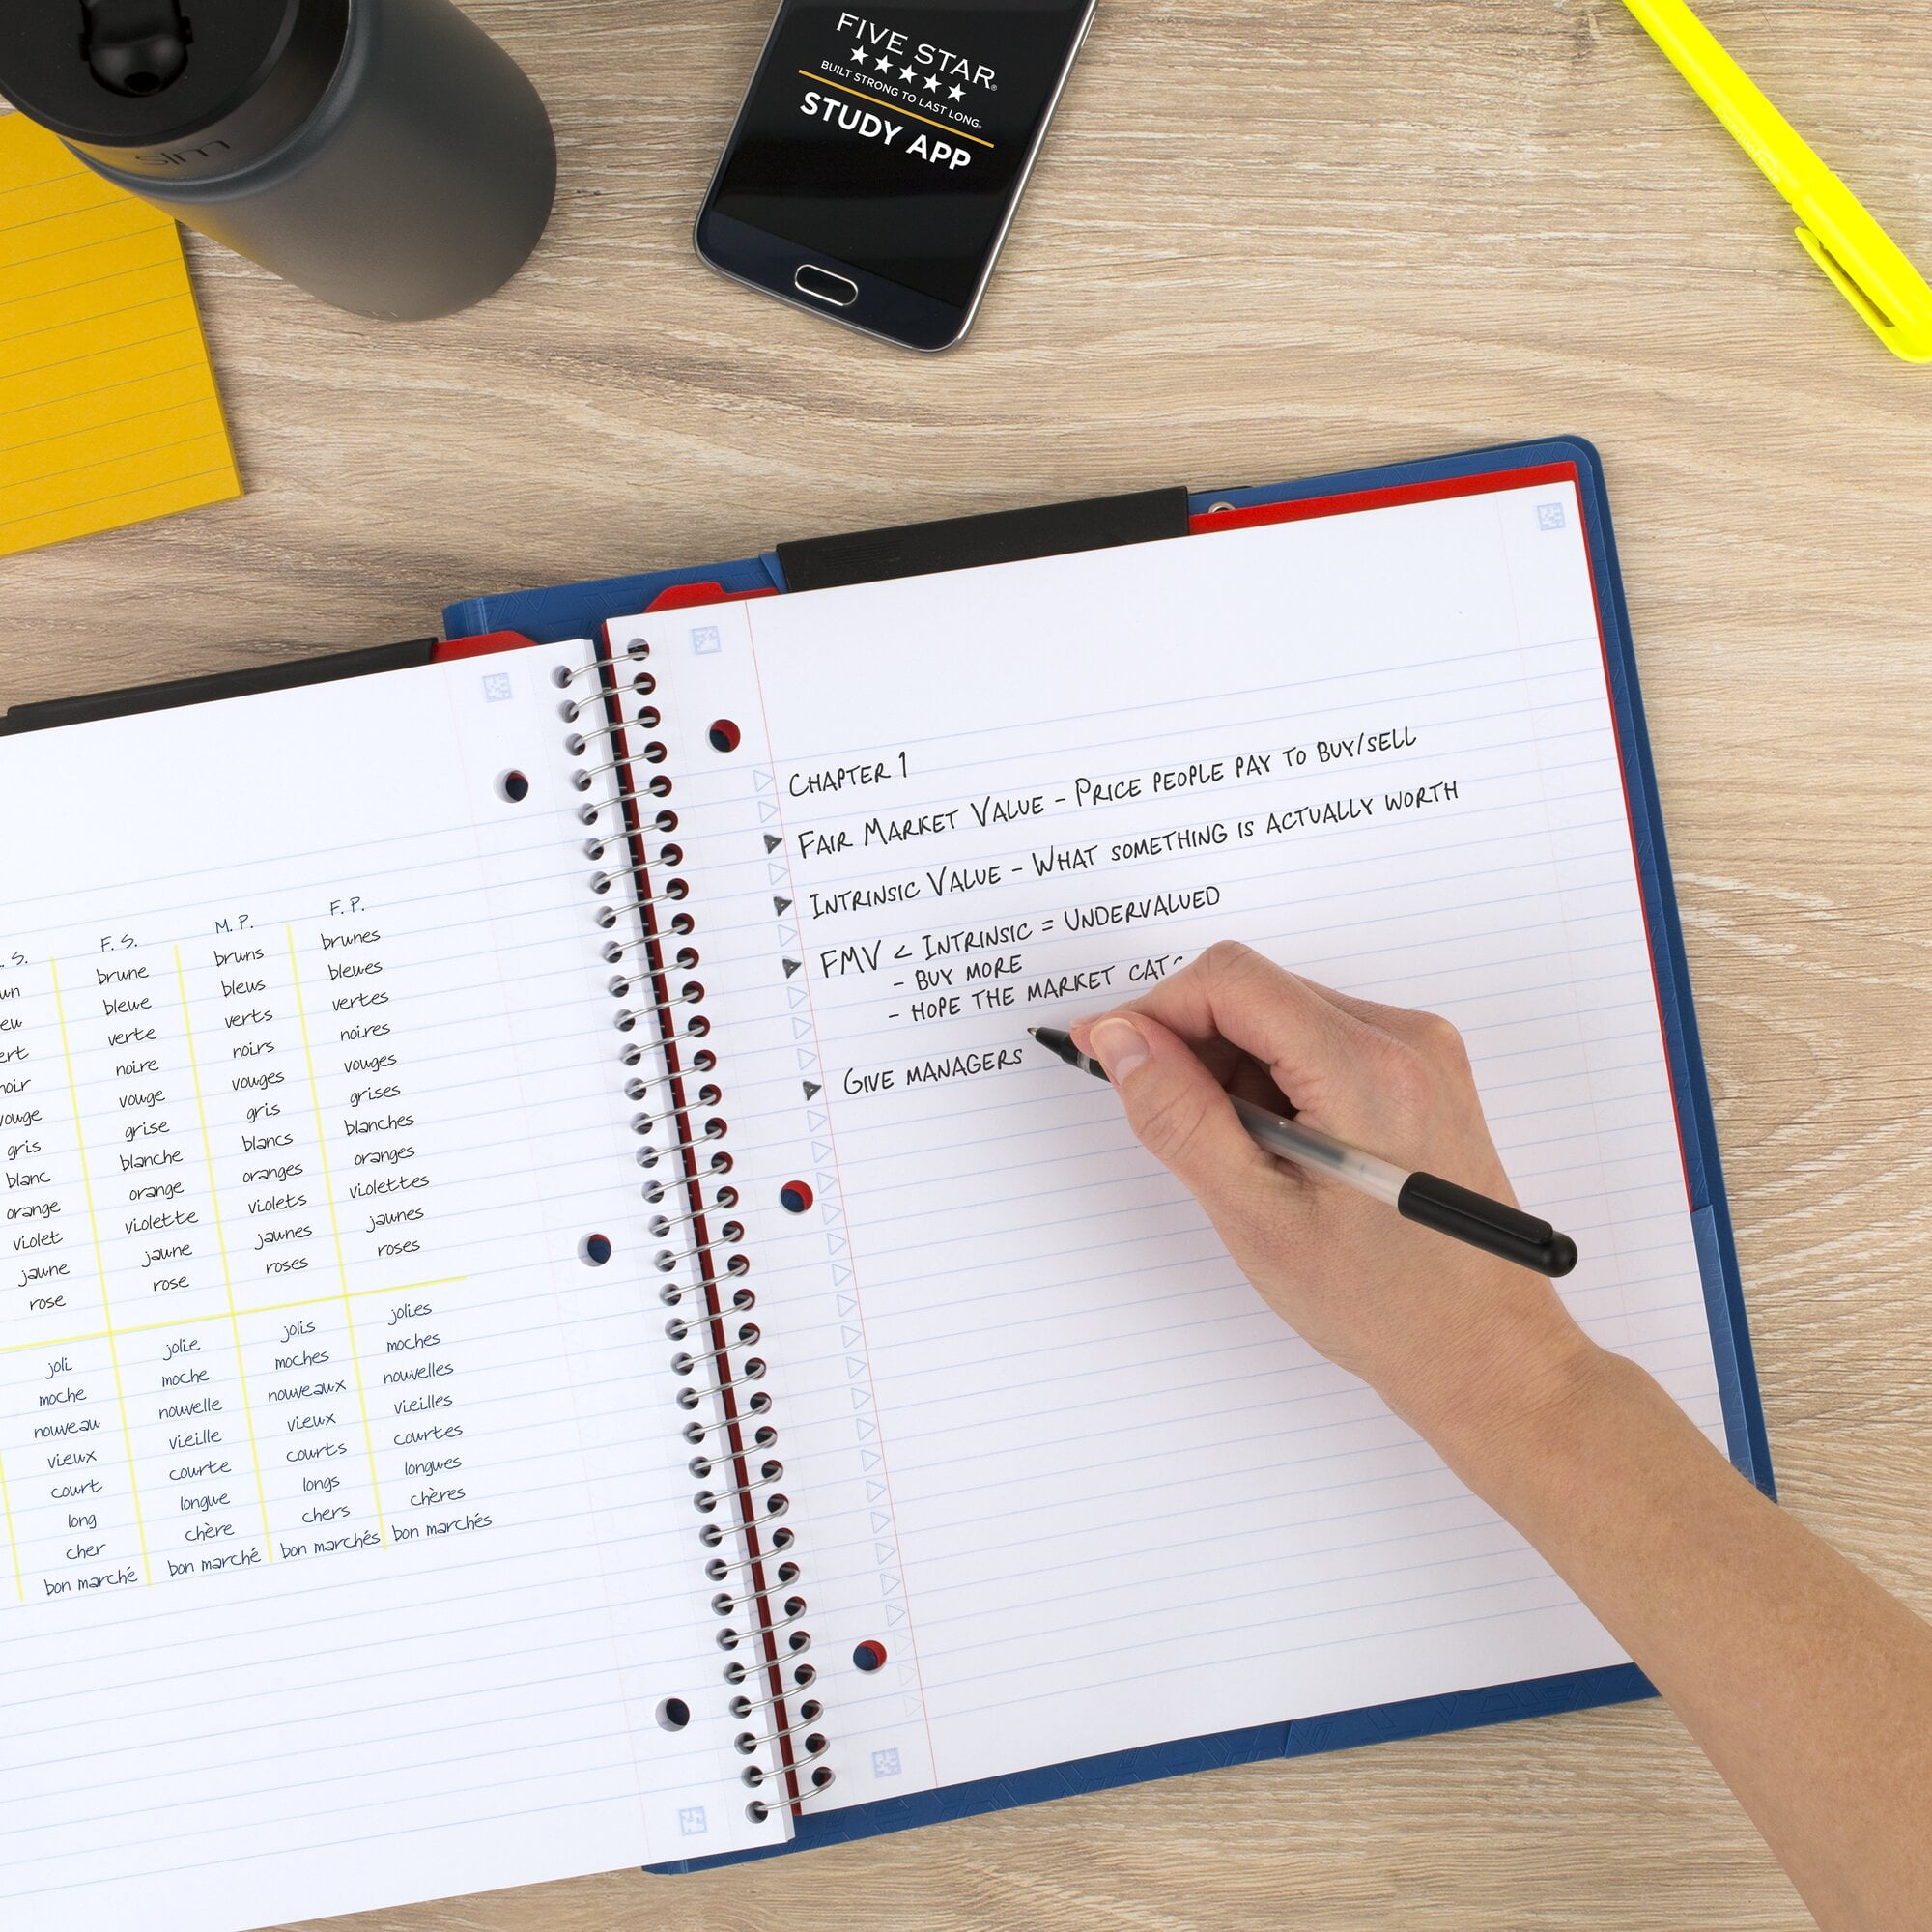 FIVE STAR®
BUILT STRONG TO LAST LONG®
STUDY APP
F. S. M. P. F. P.
brune bruns brunes
bleue bleus bleues
verte verts vertes
noire noirs noires
vouge vouges vouges
gris grise gris grises
blanc blanche blancs blanches
orange orange oranges oranges
violet violette violets violettes
jaune jaune jaunes jaunes
rose rose roses roses
joli jolie jolis jolies
moche moche moches moches
nouveau nouvelle nouveaux nouvelles
vieux vieille vieux vieilles
court courte courts courtes
long longue longs longues
cher chère chers chères
bon marché bon marché bon marchés bon marchés
CHAPTER 1
FAIR MARKET VALUE - PRICE PEOPLE PAY TO BUY/SELL
INTRINSIC VALUE - WHAT SOMETHING IS ACTUALLY WORTH
FMV < INTRINSIC = UNDERVALUED
- BUY MORE
- HOPE THE MARKET
GIVE MANAGERS